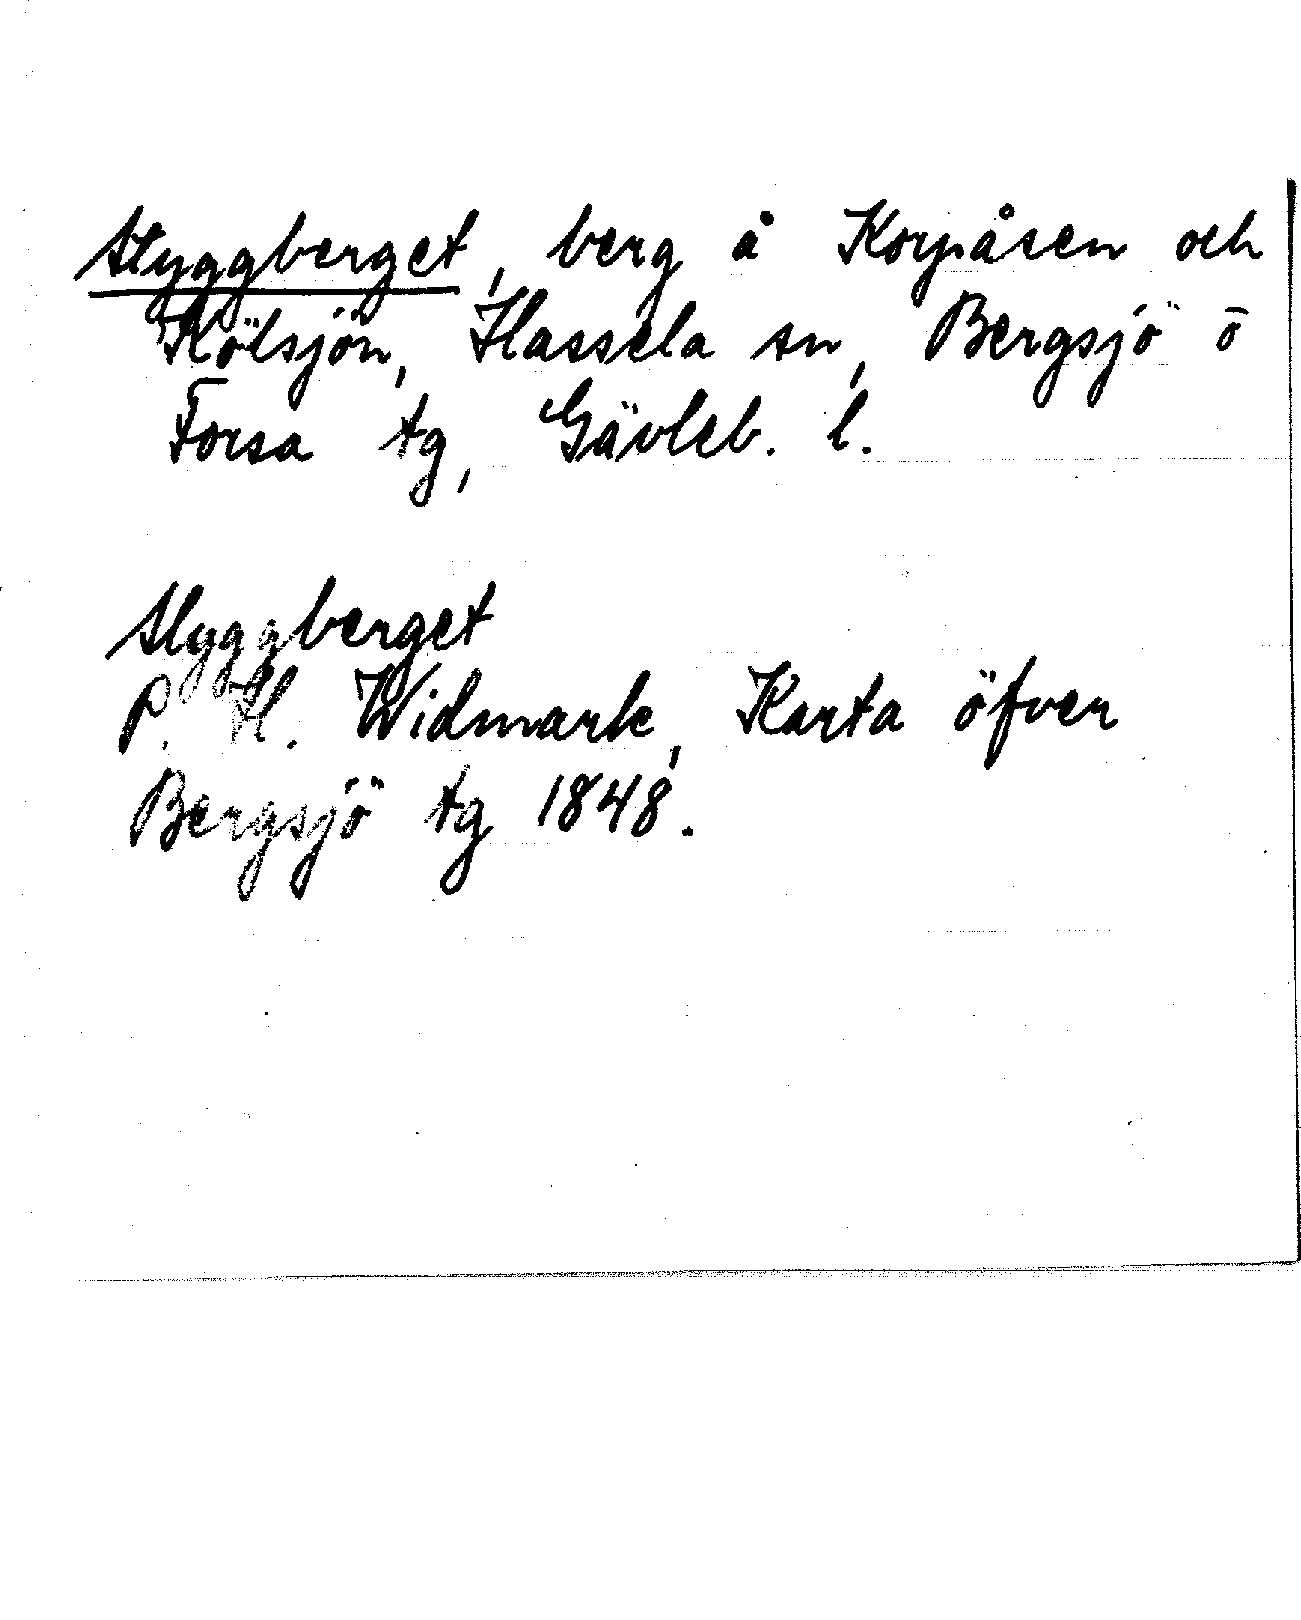 Styggberget, berg å Korpåsen och
Kölsjön, Hassela sn, Bergsjö o
Forsa tg, Gävleb. l.
Styggberget
P. H. Widmark, Karta öfver
Bergsjö tg 1848.